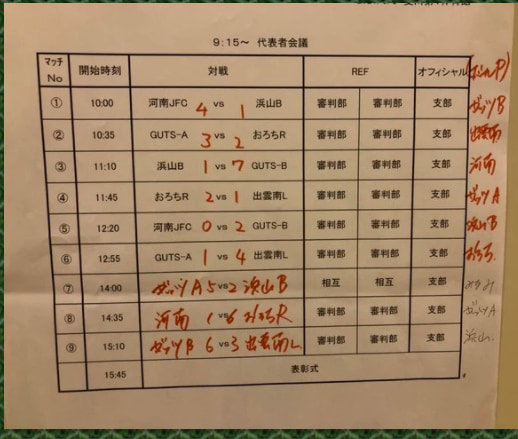 9:15～ 代表者会議
マッチNo 開始時刻 対戦 REF オフィシャル
① 10:00 河南JFC 4 vs 1 浜山B 審判部 審判部 支部 ガッツB
② 10:35 GUTS-A 3 vs 2 おろちR 審判部 審判部 支部 出雲南
③ 11:10 浜山B 1 vs 7 GUTS-B 審判部 審判部 支部 河南
④ 11:45 おろちR 2 vs 1 出雲南L 審判部 審判部 支部 ガッツA
⑤ 12:20 河南JFC 0 vs 2 GUTS-B 審判部 審判部 支部 浜山B
⑥ 12:55 GUTS-A 1 vs 4 出雲南L 審判部 審判部 支部 おろち
⑦ 14:00 ガッツA 5 vs 2 浜山B 相互 相互 支部 みなみ
⑧ 14:35 河南 1 vs 6 おろちR 審判部 審判部 支部 ガッツA
⑨ 15:10 ガッツB 6 vs 3 出雲南L 審判部 審判部 支部 浜山
15:45 表彰式